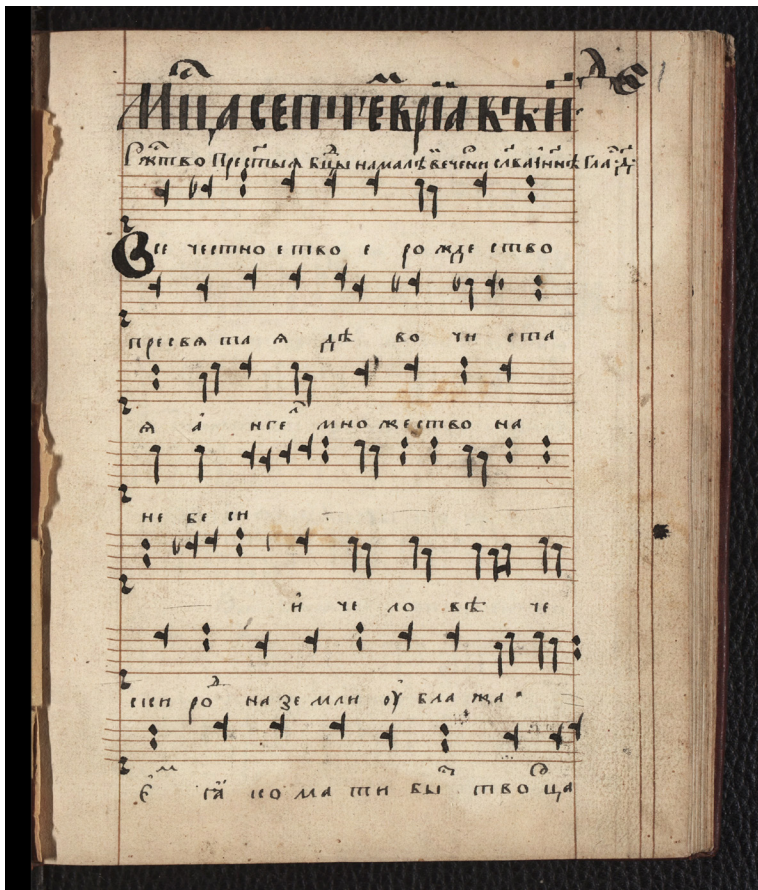 Мц҃а септеⷨврїа въ и҃
Ржⷭтво Прест҃ыя Бц҃ы на малѣⷨ вечеⷬни славаⷨ і ннѣ Глаⷭ д҃
Все честное тво е рожде ство
пресвя та я дѣ во чи ста
я а́ нгеⷧ множество на
не бе си
и҆ че ло вѣ че
ски роⷣ на земли оу бла жа
Е҆ ⷨ ꙗ ко ма ти бы ⷭ тво ⷬ ца